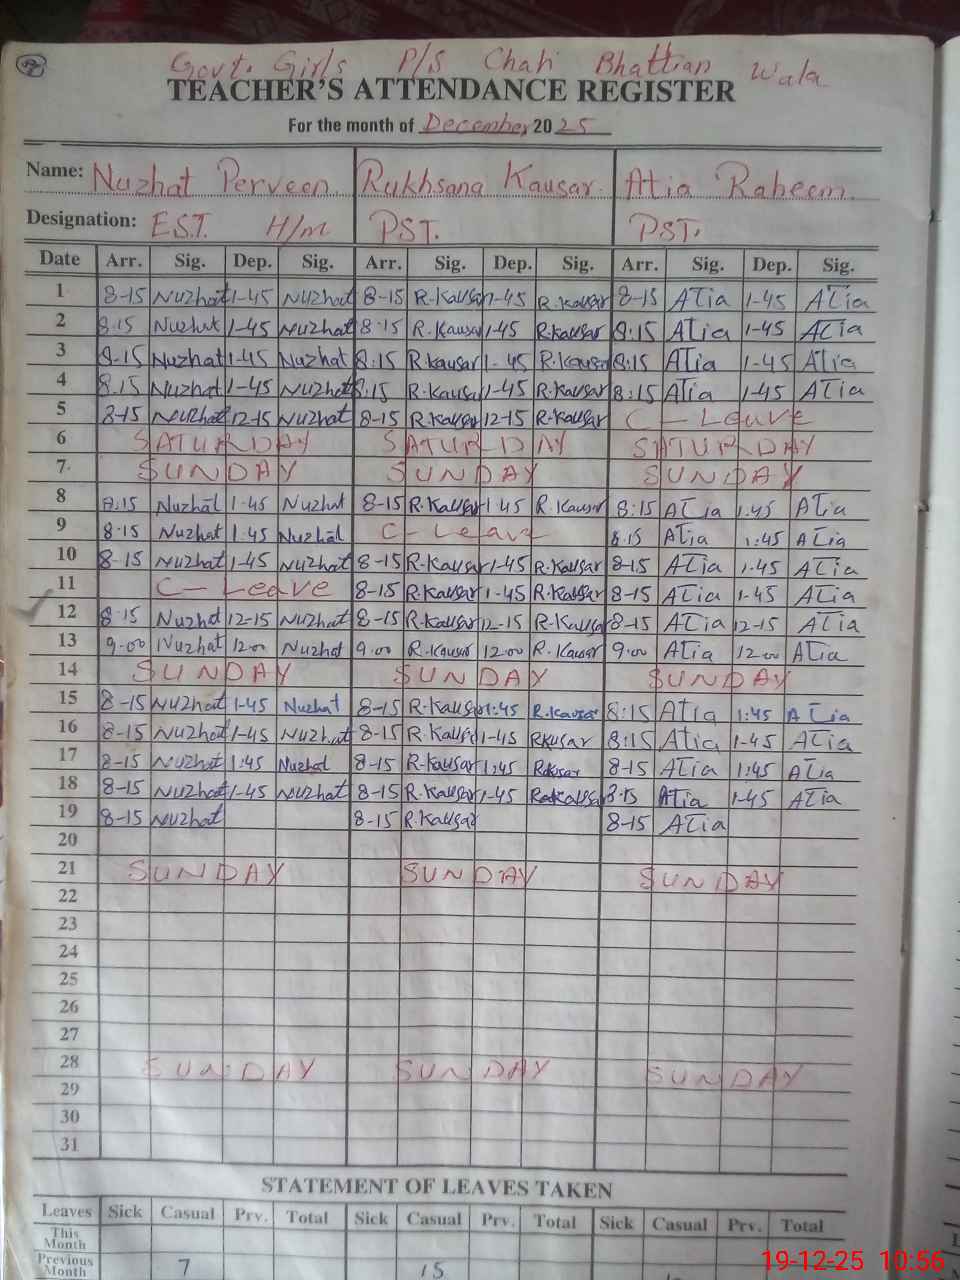 Govt. Girls P/S Chah Bhattian Wala
TEACHER'S ATTENDANCE REGISTER
For the month of December 2025
Name: Nuzhat Perveen Rukhsana Kausar Atia Raheem
Designation: E.S.T. H/m PST. PST.
Date Arr. Sig. Dep. Sig. Arr. Sig. Dep. Sig. Arr. Sig. Dep. Sig.
1 8-15 Nuzhat 1-45 Nuzhat 8-15 R.Kausar 1-45 R.Kausar 8-15 ATia 1-45 ATia
2 8.15 Nuzhat 1-45 Nuzhat 8:15 R.Kausar 1-45 R.Kausar 8:15 ATia 1-45 ATia
3 8-15 Nuzhat 1-45 Nuzhat 8:15 R.Kausar 1-45 R.Kausar 8:15 ATia 1-45 ATia
4 8.15 Nuzhat 1-45 Nuzhat 8:15 R.Kausar 1-45 R.Kausar 8:15 ATia 1-45 ATia
5 8-15 Nuzhat 12-15 Nuzhat 8-15 R.Kausar 12-15 R.Kausar C-Leave
6 SATURDAY SATURDAY SATURDAY
7 SUNDAY SUNDAY SUNDAY
8 8:15 Nuzhat 1-45 Nuzhat 8-15 R.Kausar 1-45 R.Kausar 8:15 ATia 1:45 ATia
9 8:15 Nuzhat 1:45 Nuzhat C-Leave 8:15 ATia 1:45 ATia
10 8-15 Nuzhat 1-45 Nuzhat 8-15 R.Kausar 1-45 R.Kausar 8-15 ATia 1-45 ATia
11 C-Leave 8-15 R.Kausar 1-45 R.Kausar 8-15 ATia 1-45 ATia
12 8:15 Nuzhat 12-15 Nuzhat 8-15 R.Kausar 12-15 R.Kausar 8-15 ATia 12-15 ATia
13 9-00 Nuzhat 12 00 Nuzhat 9.00 R.Kausar 12 00 R.Kausar 9.00 ATia 12 00 ATia
14 SUNDAY SUNDAY SUNDAY
15 8-15 Nuzhat 1-45 Nuzhat 8-15 R.Kausar 1:45 R.Kausar 8:15 ATia 1:45 ATia
16 8-15 Nuzhat 1-45 Nuzhat 8-15 R.Kausar 1-45 8:15 ATia 1-45 ATia
17 8-15 Nuzhat 1:45 Nuzhat 8-15 R.Kausar 1:45 8-15 ATia 1:45 ATia
18 8-15 Nuzhat 1-45 Nuzhat 8-15 R.Kausar 1-45 8-15 ATia 1-45 ATia
19 8-15 Nuzhat 8-15 R.Kausar 8-15 ATia
20
21 SUNDAY SUNDAY SUNDAY
22
23
24
25
26
27
28 SUNDAY SUNDAY SUNDAY
29
30
31
STATEMENT OF LEAVES TAKEN
Leaves Sick Casual Prv. Total Sick Casual Prv. Total Sick Casual Prv. Total
This Month
Previous Month 7 15
19-12-25 10:56